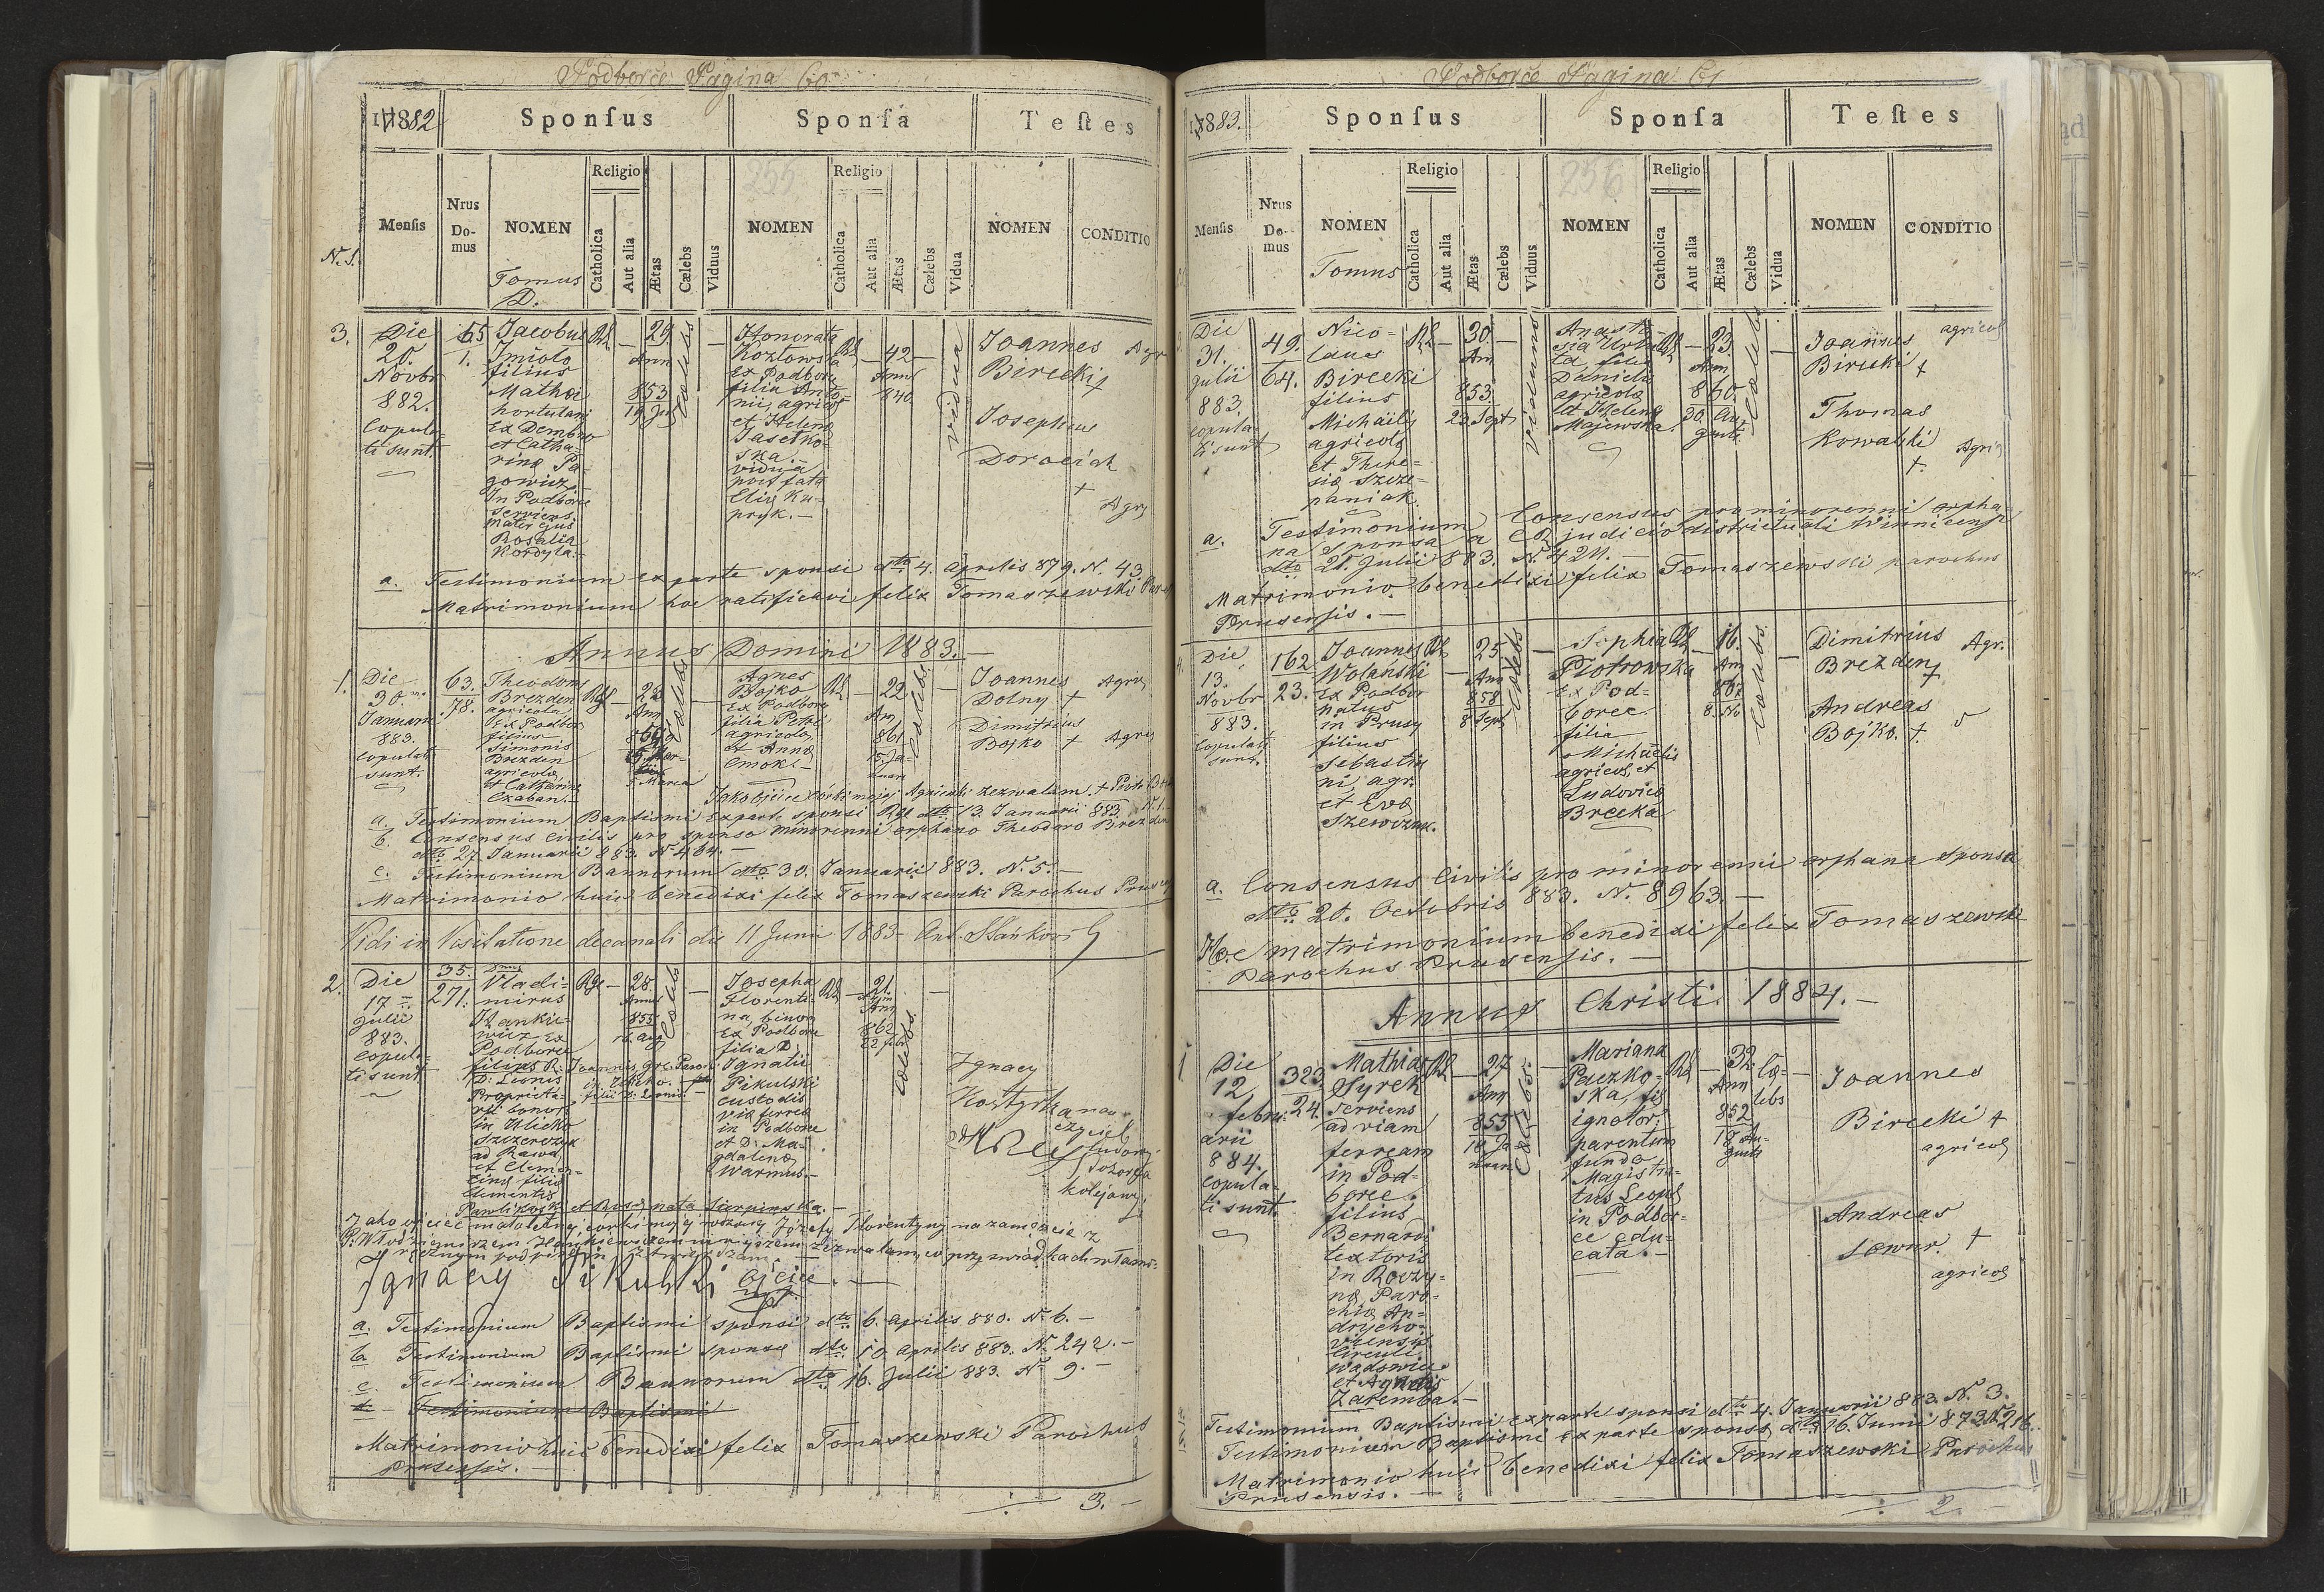 Podborce Pagina 60
1882
Sponsus
Sponsa
Testes
255
N.S.
Mensis
Nrus Domus
NOMEN
Tomus
D.
Religio
Catholica
Aut alia
Ætas
Cælebs
Viduus
NOMEN
Religio
Catholica
Aut alia
Ætas
Cælebs
Vidua
NOMEN
CONDITIO
3.
Die
20.
Novbr
882.
Copula-
ti sunt.
65
1.
Jacobus
Imioło
filius
Mathei
hortulani
ex Dembno
et Catha-
rinæ Pa-
gowicz
In Podborce
serviens
Mater ejus
Rosalia
Kordyla.
RL
29
Ann
853
cælebs
Honorata
Kozłowska
Ex Podborce
filia Anto-
nii, agricol
et Helenæ
Jaseńko-
ska.
vidua
post fata
Eliæ Ku-
pryk.
RL
42
Ann
840
vidua
Joannes
Birecki
+
Agr
Josephus
Doraciak
+
Agr
a. Testimonium ex parte sponsi dto 4. Aprilis 879. N. 43
Matrimonium hoc ratificavi felix Tomaszewski Paroch
Annus Domini 1883.
1.
Die
30.
Januarii
883.
copulati
sunt.
63.
78.
Theodorus
Brezden
agricola
Ex Podbor
filius
Simonis
Brezden
agricolæ
et Catharinæ
Czaban.
RG
23
Ann
cælebs
Agnes
Bojko
Ex Podborce
filia Petri
agricolæ
et Annæ
Cmoki
RL
22
Ann
861
5. Ja-
nuar
cælebs
Joannes
Dolny +
Agric
Dimitrius
Bojko +
Agric
Jako ojciec córki mojej Agnieszki zezwalam. + Piotr Bojko
a. Testimonium Baptismi Ex parte sponsi RG dto 13. Januarii 883. N. 1.
b. Consensus Civilis pro sponso minorenni orphano Theodoro Brezden
dto 27. Januarii 883. N 464.
c. Testimonium Bannorum dto 30. Januarii 883. N. 5.
Matrimonio huic benedixi felix Tomaszewski Parochus Prusen
Vidi in Visitatione decanali die 11 Junii 1883
2.
Die
17
Julii
883.
copula-
ti sunt
35.
271.
Vladi-
mirus
Hankie-
wicz ex
Podborce
filius D. Joannis, gr. c. Paroch
D. Leonis
Proprieta-
rii bonor
in Ulicko
Szczerczyk
ad Rawa,
et Clemen-
tinæ filiæ
Clementis
Pawlikoski et Rosa nata Sierpinska.
RG
28
Ann
855
16. Aug
cælebs
Josepha
Florenti-
na, binom
Ex Podborce
filia D.
Ignatii
Pikulski
custodis
viæ ferreæ
in Podborce
et D. Ma-
gdalenæ
Warmus.
RL
21.
Ann
862
22 febr
cælebs
Ignacy
Kostyrka nau-
czyciel
ludowy
dozorca
kolejowy
Jako ojciec małoletniej córki mojej rodzonej Józefy Florentyny na zamęście z
P. Włodzimierzem Hankiewiczem niniejszem zezwalam, co przy świadkach własno-
ręcznym podpisem stwierdzam
Ignacy Pikulski ojciec.
a. Testimonium Baptismi sponsi dto 6. Aprilis 880. N. 6.
b. Testimonium Baptismi sponsæ dto 10 Aprilis 883. N. 242.
c. Testimonium Bannorum dto 16. Julii 883. N 9.
Testimonium Baptismi
Matrimonio huic benedixi felix Tomaszewski Parochus
Prusensis.
3.
Podborce Pagina 61
1883.
Sponsus
Sponsa
Testes
256
Mensis
Nrus Domus
NOMEN
Tomus
Religio
Catholica
Aut alia
Ætas
Cælebs
Viduus
NOMEN
Religio
Catholica
Aut alia
Ætas
Cælebs
Vidua
NOMEN
CONDITIO
Die
31.
Julii
883.
copula-
ti sunt
49.
64.
Nico-
laus
Birecki
filius
Michaëlis
agricolæ
et There-
siæ Szcze-
paniak
RL
30.
Ann
853
23. Sept
viduus
Anasta-
sia
filia
Danielis
agricolæ
et Helenæ
Majewska
RL
23.
Ann
860.
30. Au-
gusti
cælebs
Joannes
Birecki +
agricol
Thomas
Kowalski
+
Agric
a. Testimonium Consensus pro minorenni orpha-
na sponsa a CR judicio districtuali Winnicensi
dto 25. Julii 883. N. 4211.
Matrimonio benedixi felix Tomaszewski parochus
Prusensis.
4.
Die
13.
Novbr
883.
copulati
sunt.
162
23.
Joannes
Wolański
Ex Podbor
natus
in Prusy
filius
Sebastia
ni, agr.
et Evæ
Szewczuk.
RL
25
Ann
858
8 Sept
cælebs
Sophia
Piotrowska
Ex Pod-
borce.
filia
Michaëlis
agricol, et
Ludovicæ
Brecka
RL
16.
Ann
867
8. No
cælebs
Dimitrius
Brezden +
Agr.
Andreas
Bojko. +
a. Consensus Civilis pro minorenni orphana sponsa
dto 20. Octobris 883. N. 8963.
Hoc matrimonium benedixi felix Tomaszewski
Parochus Prusensis.
Annus Christi 1884.
1
Die
12
febru-
arii
884.
copula-
ti sunt.
323
24.
Mathias
Syrek
serviens
ad viam
ferream
in Pod-
borce.
filius
Bernardi
textoris
in Roczy-
na, Paro-
chia An-
drycho-
vicensis
Circuli
Wadowice
et Agnetis
Zaremba.
RL
27
Ann
855
cælebs
Mariana
Paczko-
ska, fil
ignotor.
parentum
fundo
Magistra-
tus Leopol
in Podbor-
ce edu-
cata.
RL
32.
Ann
852
18 Au-
gusti
Cæ-
lebs
Joannes
Birecki +
agricol
Andreas
+
agricol
Testimonium Baptismi ex parte sponsi dto 4. Januarii 883. N. 3.
Testimonium Baptismi ex parte sponsæ dto 16. Junii 873. N 216.
Matrimonio huic benedixi felix Tomaszewski Parochus
Prusensis.
2